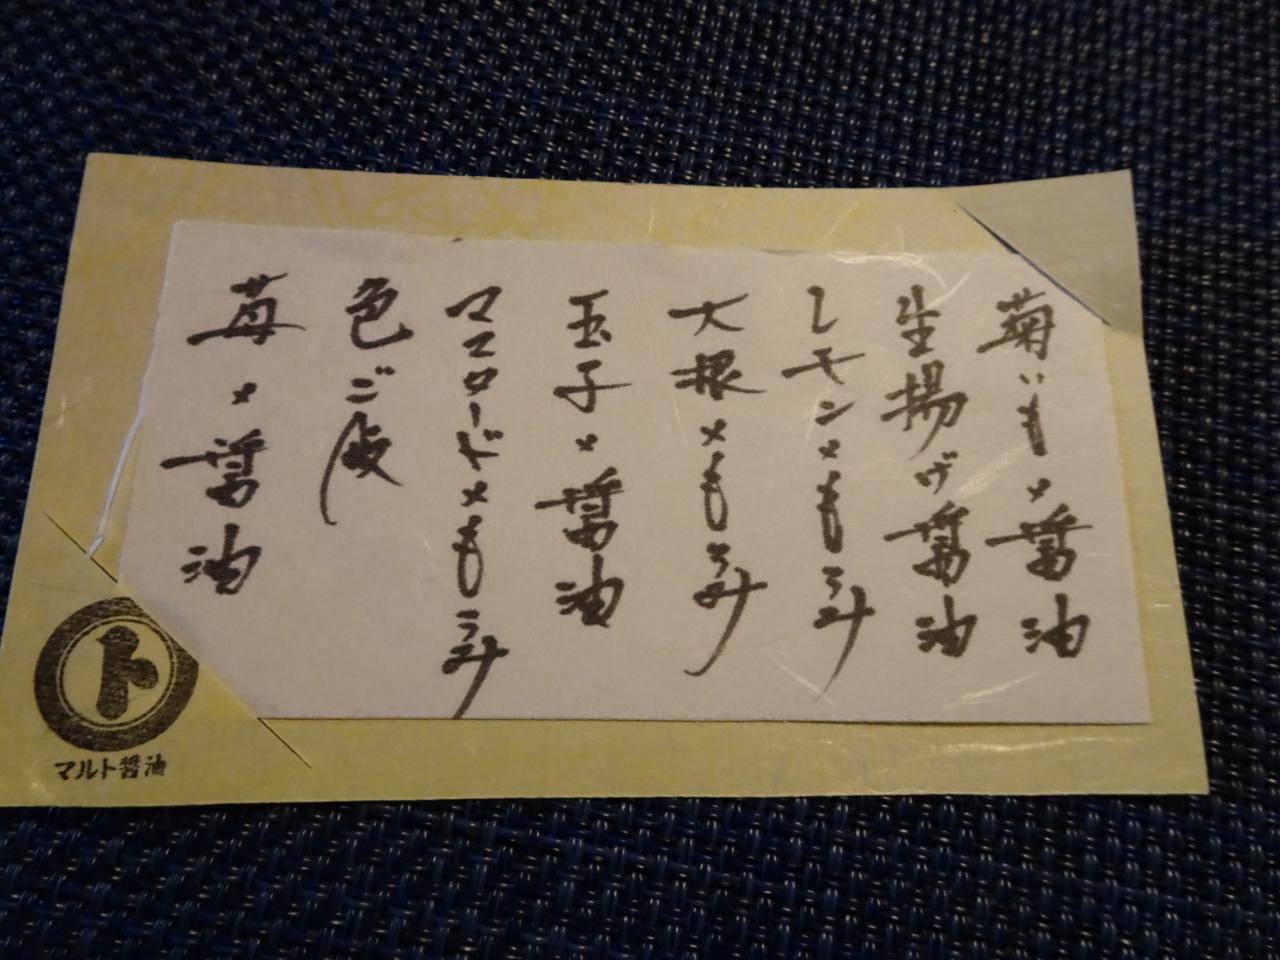 菊いも×醤油
生揚げ醤油
レモン×もろみ
大根×もろみ
玉子×醤油
マスタード×もろみ
色ご飯
苺×醤油
ト
マルト醤油